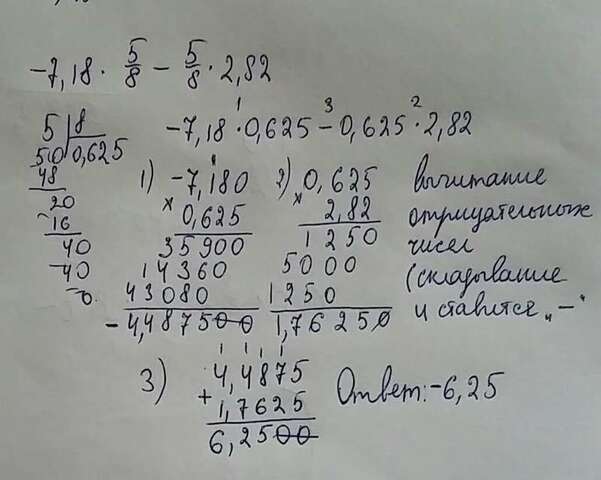 -7,18 · 5/8 - 5/8 · 2,82
-7,18 · 0,625 - 0,625 · 2,82
1 3 2
5 | 8
50 | 0,625
48
20
-16
40
-40
0
1) -7,180
× 0,625
35900
14360
43080
-4,487500
2) 0,625
× 2,82
1250
5000
1250
1,76250
вычитание
отрицательных
чисел
(складывание
и ставится „-"
3) 4,4875
+ 1,7625
6,2500
1 1 1 1
Ответ: -6,25